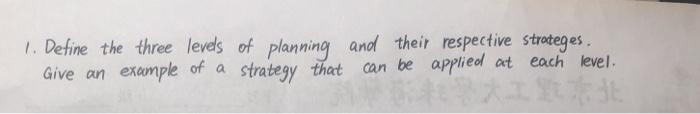 1. Define the three levels of planning and their respective strateges.
Give an example of a strategy that can be applied at each level.